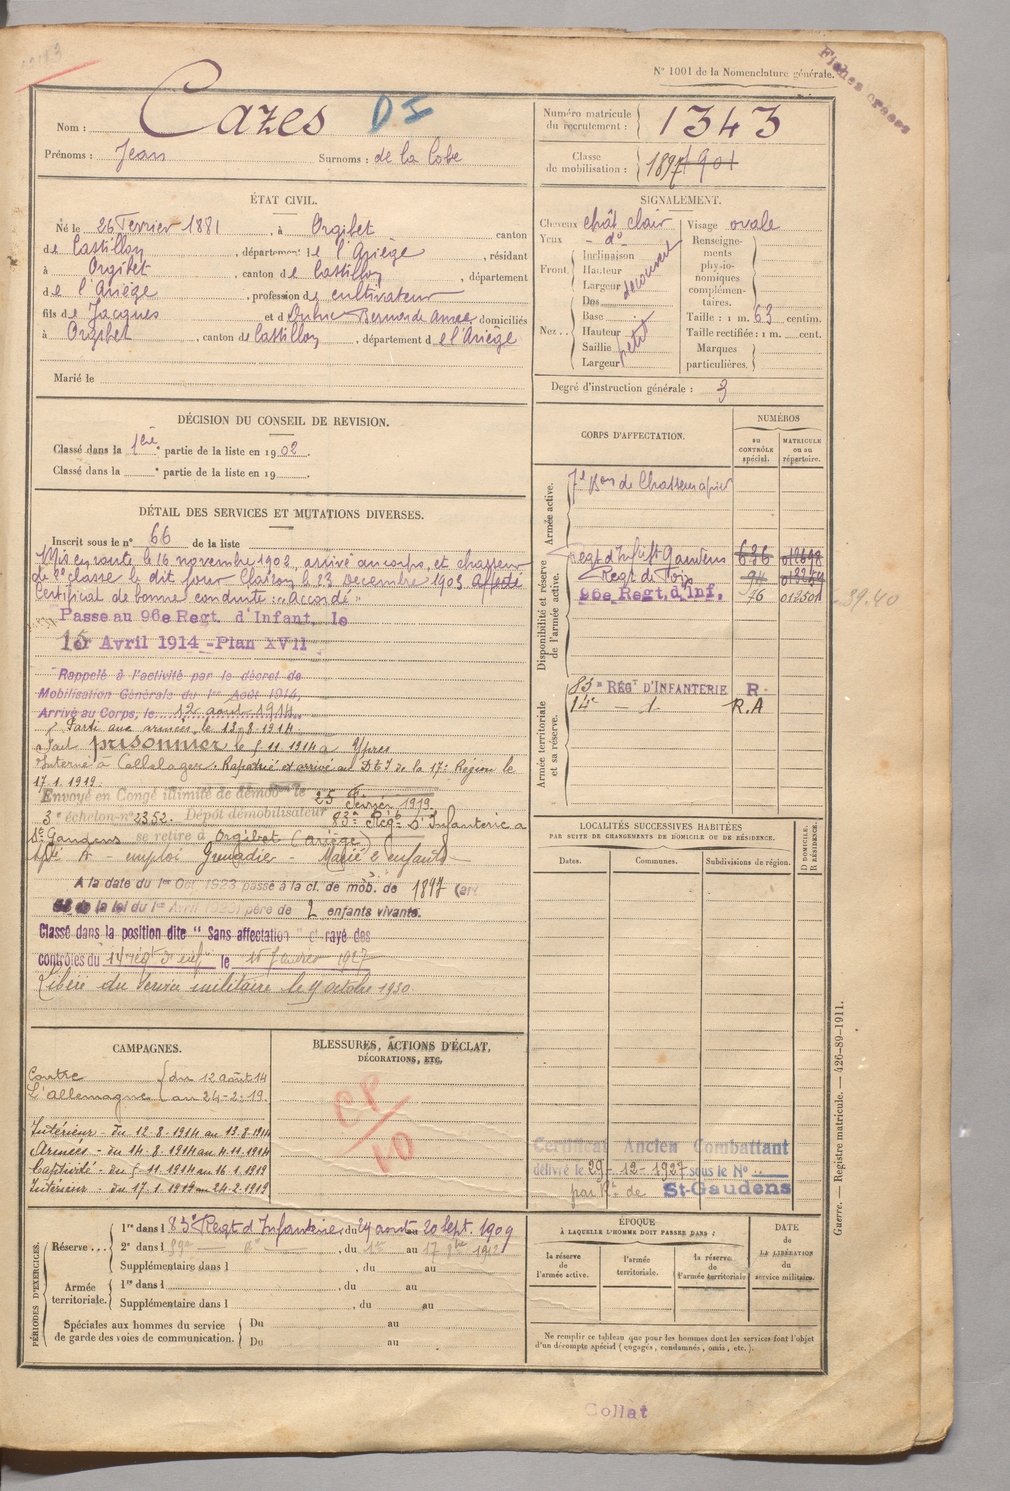 N° 1001 de la Nomenclature générale.
Fiches creees
Nom : Cazes D I
Prénoms : Jean Surnoms : de la Cobe
Numéro matricule du recrutement : 1343
Classe de mobilisation : 1897 1901
ÉTAT CIVIL.
Né le 26 Fevrier 1881, à Orgibet canton
de Castillon, département de l'Ariège, résidant
à Orgibet, canton de Castillon, département
de l'Ariège, profession de cultivateur
fils de Jacques et d Bernarde Anne domiciliés
à Orgibet, canton de Castillon, département de l'Ariège
Marié le
SIGNALEMENT.
Cheveux chât clair
Yeux - d° -
Front. Inclinaison
Hauteur
Largeur
découvert
Nez. Dos
Base
Hauteur
Saillie
Largeur
petit
Visage ovale
Renseignements physionomiques complémentaires.
Taille : 1 m. 63 centim.
Taille rectifiée : 1 m. cent.
Marques particulières.
Degré d'instruction générale : 3
DÉCISION DU CONSEIL DE REVISION.
Classé dans la 1ère partie de la liste en 1902.
Classé dans la e partie de la liste en 19 .
DÉTAIL DES SERVICES ET MUTATIONS DIVERSES.
Inscrit sous le n° 66 de la liste
Mis en route le 16 novembre 1902, arrivé au corps, et chasseur
de 2e classe le dit jour le 23 Decembre 1903 Affecté
Certificat de bonne conduite : "Accordé"
Passe au 96e Regt. d'Infant. le
1er Avril 1914 - Plan XVII
Rappelé à l'activité par le décret de
Mobilisation Générale du 1er Août 1914,
Arrivé au Corps, le 12 aout 1914.
Parti aux armées le 13.8.1914
Fait prisonnier le 5.11.1914 à Ypres
Interné à Rapatrié et arrivé au D.I de la 17e Région le
17.1.1919.
Envoyé en Congé illimité de démob le 25 Février 1919.
3e échelon n° 2352. Dépôt démobilisateur 83e Régt d'Infanterie à
St Gaudens se retire à Orgibet (Ariège)
emploi Grenadier - Marié 2 enfants
A la date du 1er Oct 1923 passé à la cl. de mob. de 1897 (art
58 de la loi du 1er Avril 1923) père de 2 enfants vivants.
Classé dans la position dite " Sans affectation " et rayé des
contrôles du 14 régt d'inf le 15 fevrier 1927
Libéré du service militaire le octobre 1930.
CORPS D'AFFECTATION.
NUMÉROS
au CONTRÔLE spécial.
MATRICULE ou au répertoire.
Armée active.
7e Bon de Chasseurs à pied
Disponibilité et réserve de l'armée active.
Regt d'Inf St Gaudens 636
Regt de Foix 94
96e Regt. d'Inf. 76
39.40
Armée territoriale et sa réserve.
83e RÉGT D'INFANTERIE R.
14e - 1 R.A
LOCALITÉS SUCCESSIVES HABITÉES
PAR SUITE DE CHANGEMENTS DE DOMICILE OU DE RÉSIDENCE.
Dates. Communes. Subdivisions de région. D DOMICILE. R RÉSIDENCE.
Certificat Ancien Combattant
délivré le 29-12-1927 sous le N°
par de St-Gaudens
CAMPAGNES.
Contre l'Allemagne du 12 août 14
au 24-2-19.
Intérieur - du 12-8-1914 au 13.8.1914
Armées - du 14.8.1914 au 4.11.1914
Captivité - du 5-11.1914 au 16.1.1919
Intérieur - du 17.1.1919 au 24-2-1919
BLESSURES, ACTIONS D'ÉCLAT, DÉCORATIONS, ETC.
CP/10
PÉRIODES D'EXERCICES.
Réserve... 1re dans l 83e Régt d'Infanterie, du 29 aout au 20 Sept. 1909
2e dans l , du 1er au 17
Supplémentaire dans l , du au
Armée territoriale. 1re dans l , du au
Supplémentaire dans l , du au
Spéciales aux hommes du service de garde des voies de communication. Du au
Du au
ÉPOQUE
À LAQUELLE L'HOMME DOIT PASSER DANS :
la réserve de l'armée active.
l'armée territoriale.
la réserve de l'armée territoriale
DATE de LA LIBÉRATION du service militaire.
Ne remplir ce tableau que pour les hommes dont les services font l'objet
d'un décompte spécial (engagés, condamnés, omis, etc.).
Guerre. — Registre matricule. — 426-89-1911.
Collat